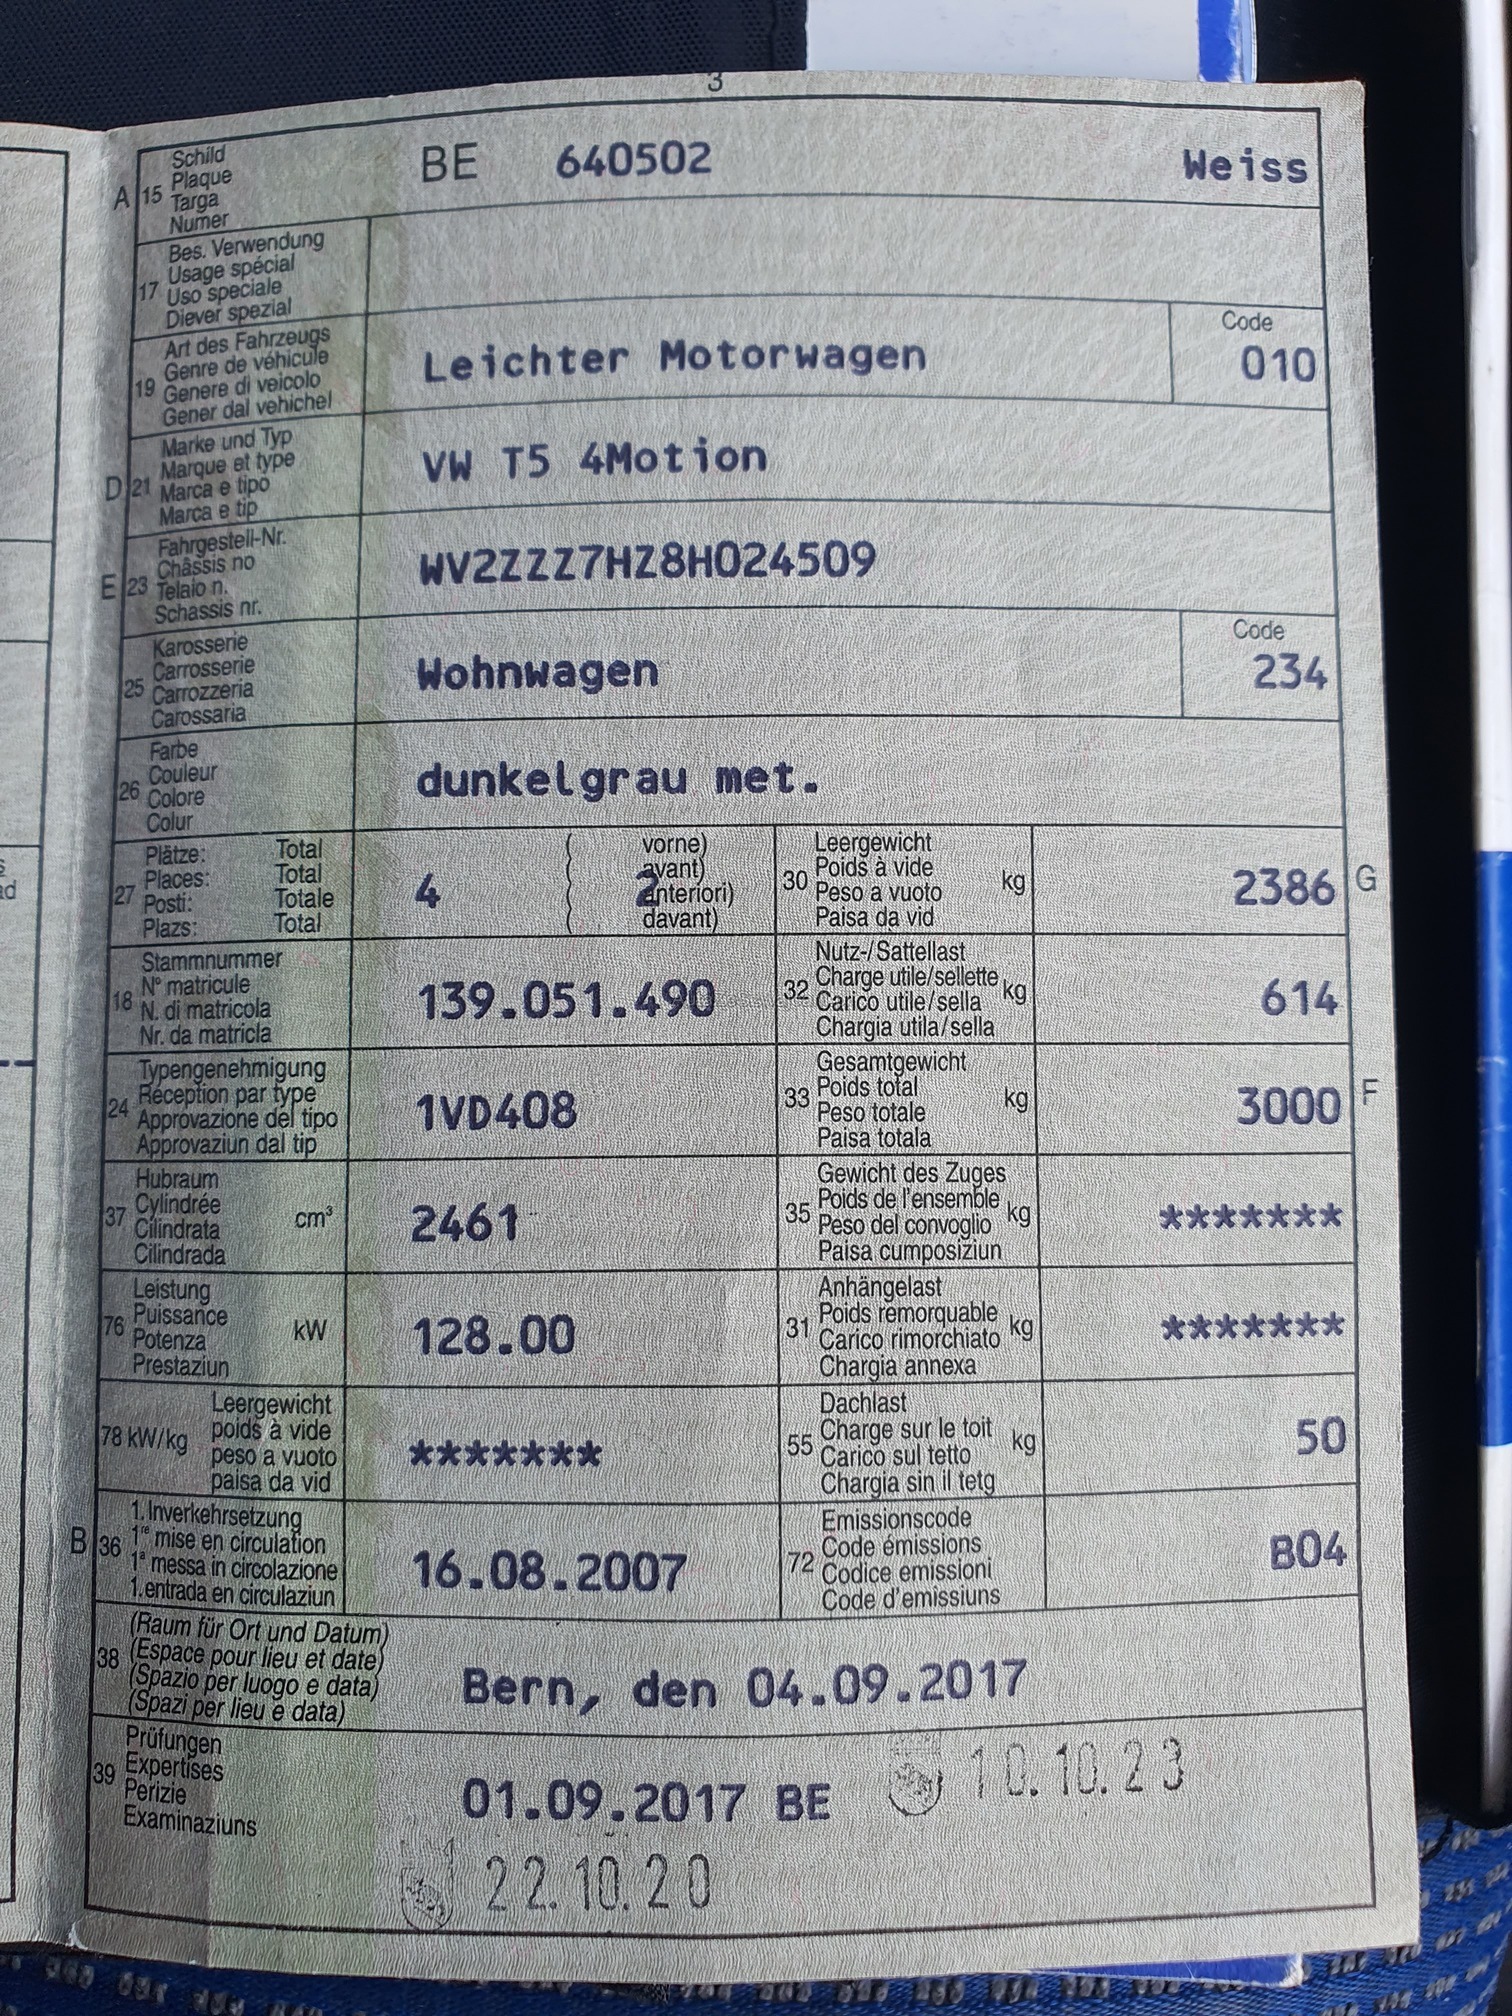 3
A 15 Schild
Plaque
Targa
Numer
BE 640502 Weiss
17 Bes. Verwendung
Usage spécial
Uso speciale
Diever spezial
19 Art des Fahrzeugs
Genre de véhicule
Genere di veicolo
Gener dal vehichel
Leichter Motorwagen
Code
010
D 21 Marke und Typ
Marque et type
Marca e tipo
Marca e tip
VW T5 4Motion
E 23 Fahrgestell-Nr.
Châssis no
Telaio n.
Schassis nr.
WV2ZZZ7HZ8H024509
25 Karosserie
Carrosserie
Carrozzeria
Carossaria
Wohnwagen
Code
234
26 Farbe
Couleur
Colore
Colur
dunkelgrau met.
27 Plätze: Total
Places: Total
Posti: Totale
Plazs: Total
4
( vorne)
avant)
2
anteriori)
( davant)
30 Leergewicht
Poids à vide
Peso a vuoto
Paisa da vid
kg
2386 G
18 Stammnummer
N° matricule
N. di matricola
Nr. da matricla
139.051.490
32 Nutz-/Sattellast
Charge utile/sellette
Carico utile/sella
Chargia utila/sella
kg
614
24 Typengenehmigung
Réception par type
Approvazione del tipo
Approvaziun dal tip
1VD408
33 Gesamtgewicht
Poids total
Peso totale
Paisa totala
kg
3000 F
37 Hubraum
Cylindrée
Cilindrata
Cilindrada
cm³
2461
35 Gewicht des Zuges
Poids de l'ensemble
Peso del convoglio
Paisa cumposiziun
kg
*******
76 Leistung
Puissance
Potenza
Prestaziun
kW
128.00
31 Anhängelast
Poids remorquable
Carico rimorchiato
Chargia annexa
kg
*******
78 kW/kg Leergewicht
poids à vide
peso a vuoto
paisa da vid
*******
55 Dachlast
Charge sur le toit
Carico sul tetto
Chargia sin il tetg
kg
50
B 36 1. Inverkehrsetzung
1re mise en circulation
1a messa in circolazione
1. entrada en circulaziun
16.08.2007
72 Emissionscode
Code émissions
Codice emissioni
Code d'emissiuns
B04
38 (Raum für Ort und Datum)
(Espace pour lieu et date)
(Spazio per luogo e data)
(Spazi per lieu e data)
Bern, den 04.09.2017
39 Prüfungen
Expertises
Perizie
Examinaziuns
01.09.2017 BE
10.10.23
22.10.20